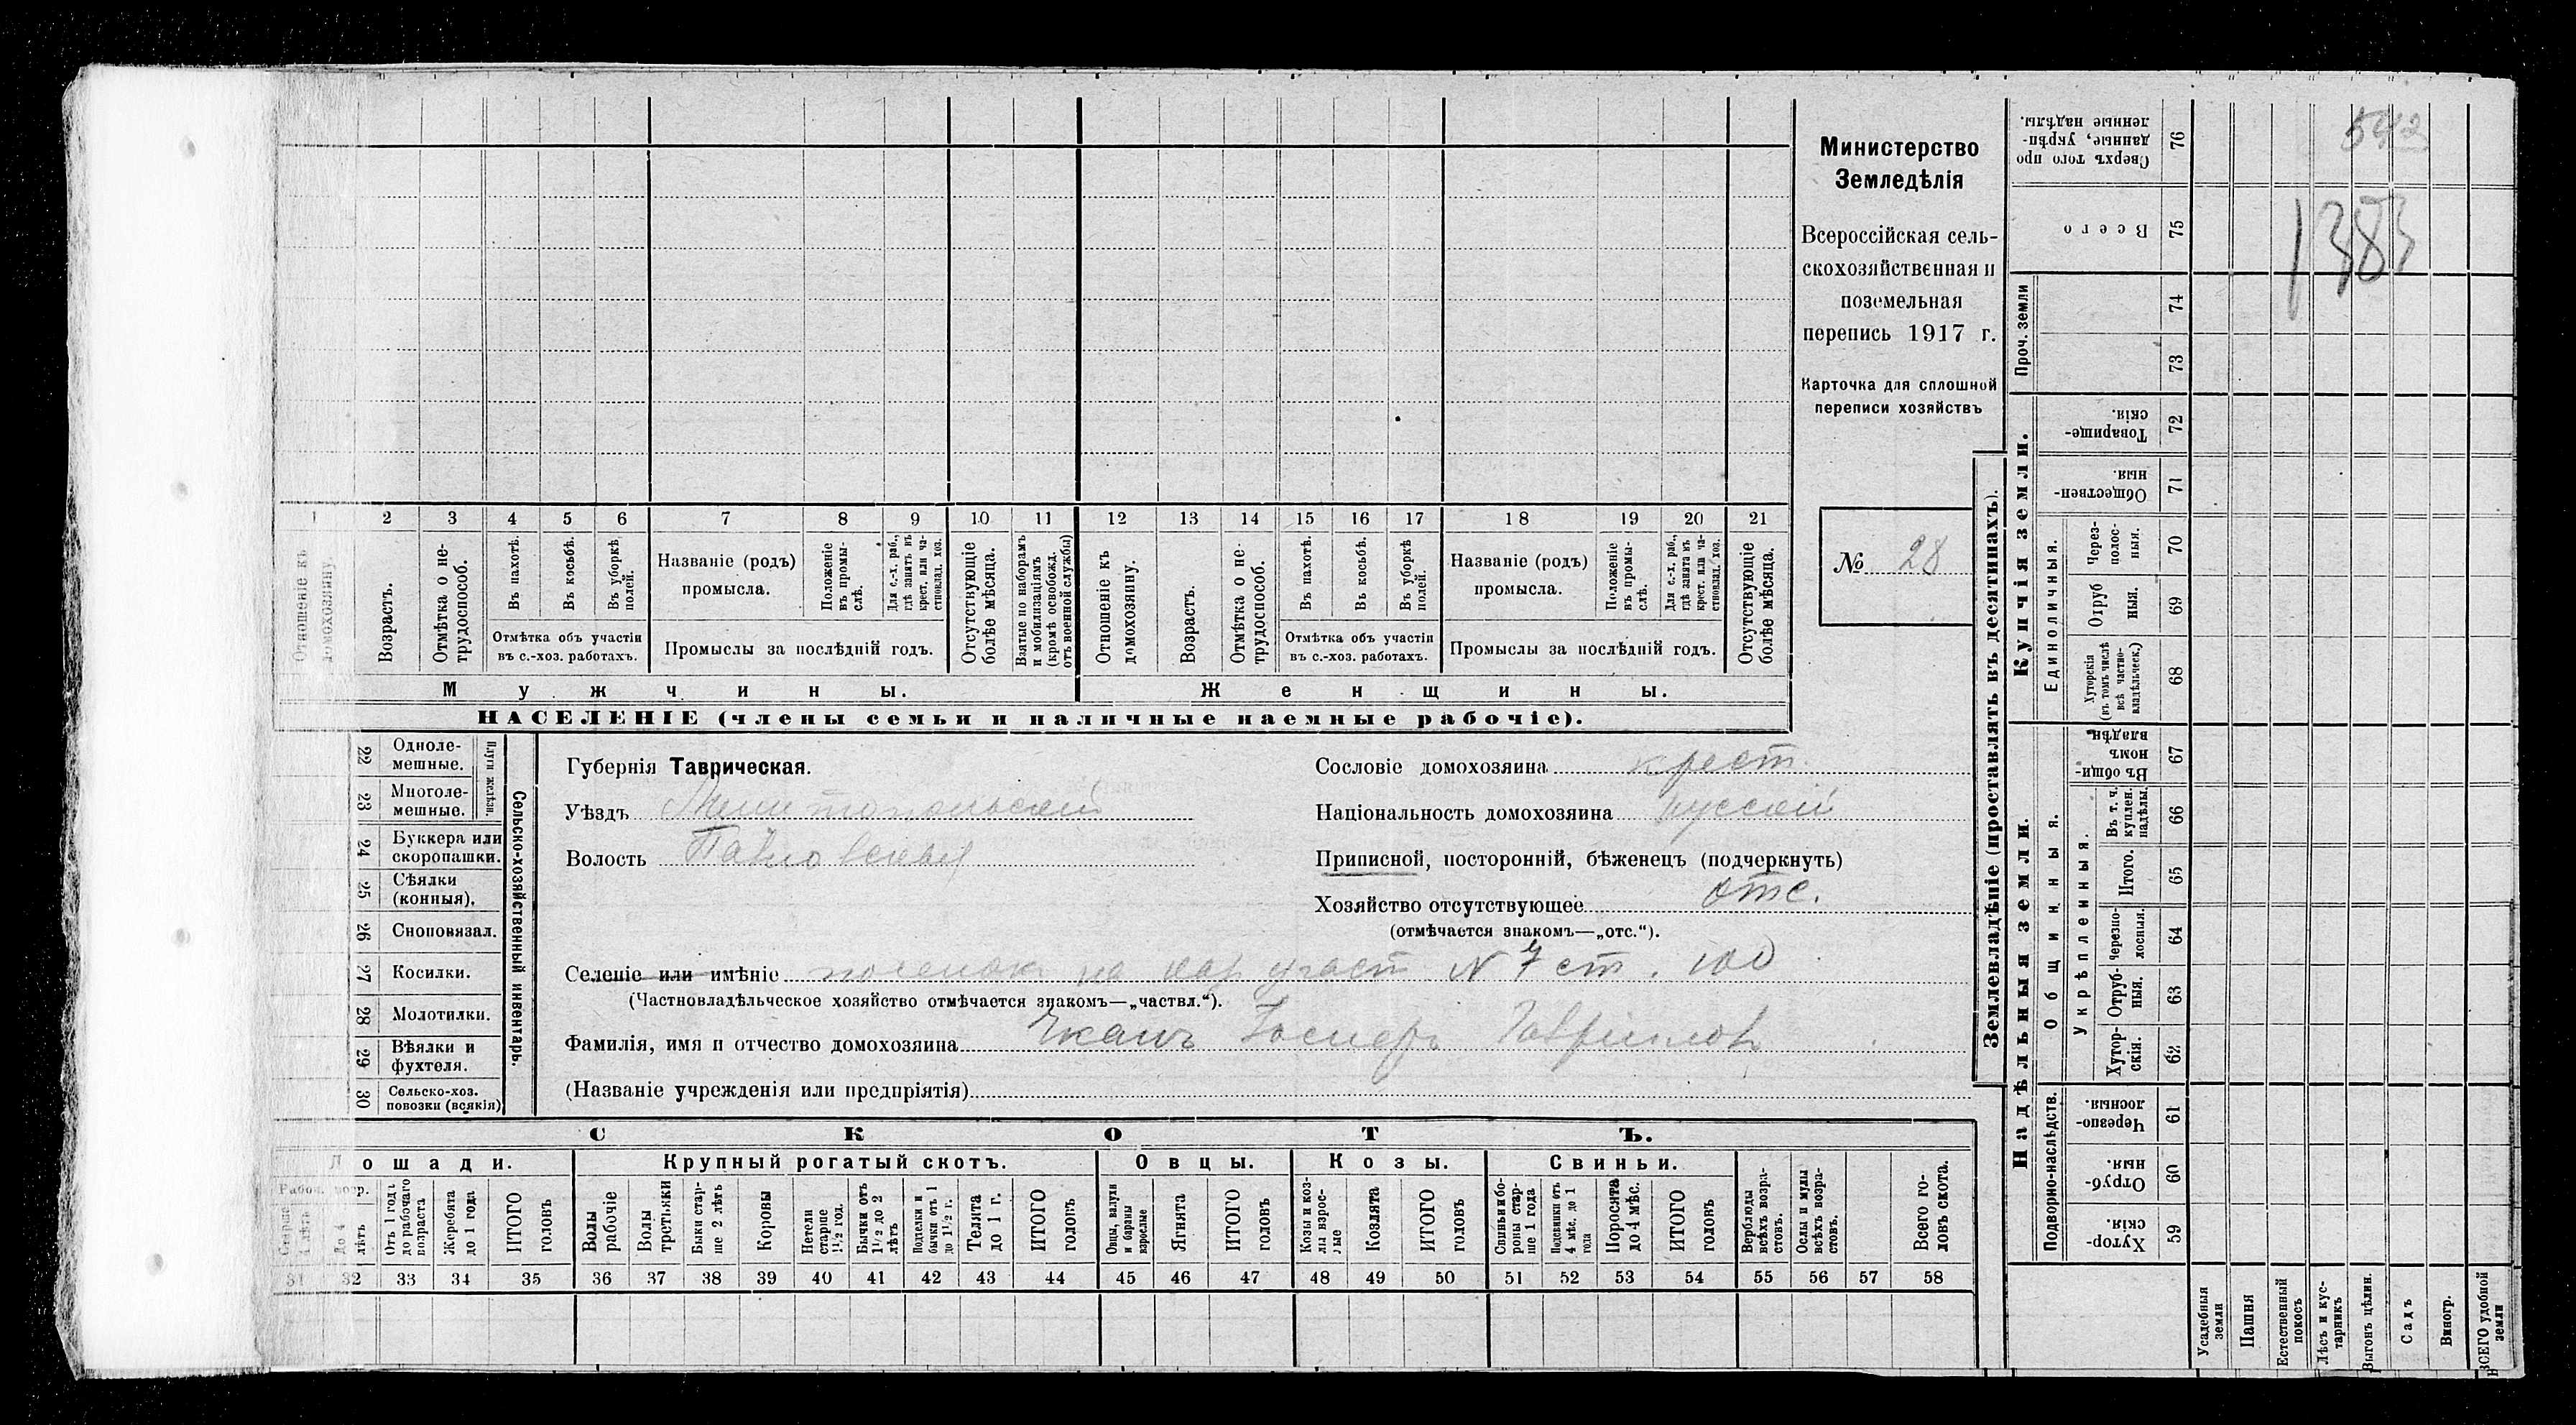 Министерство
Земледѣлія
Всероссійская сель-
скохозяйственная и
поземельная
перепись 1917 г.
Карточка для сплошной
переписи хозяйствъ
№ 28
1 2 3 4 5 6 7 8 9 10 11 12 13 14 15 16 17 18 19 20 21
Отношеніе къ домохозяину.
Возрастъ.
Отмѣтка о не-трудоспособ.
Въ пахотѣ.
Въ косьбѣ.
Въ уборкѣ полей.
Названіе (родъ) промысла.
Положеніе въ промы-слѣ.
Для с.-х. раб., гдѣ занятъ въ крест. или ча-стновлад. хоз.
Отсутствующіе болѣе мѣсяца.
Взятые по наборамъ и мобилизаціямъ (кромѣ освобожд. отъ военной службы)
Отношеніе къ домохозяину.
Возрастъ.
Отмѣтка о не-трудоспособ.
Въ пахотѣ.
Въ косьбѣ.
Въ уборкѣ полей.
Названіе (родъ) промысла.
Положеніе въ промы-слѣ.
Для с.-х. раб., гдѣ занята въ крест. или ча-стновлад. хоз.
Отсутствующіе болѣе мѣсяца.
Отмѣтка объ участіи въ с.-хоз. работахъ.
Промыслы за послѣдній годъ.
Отмѣтка объ участіи въ с.-хоз. работахъ.
Промыслы за послѣдній годъ.
Мужчины.
Женщины.
НАСЕЛЕНІЕ (члены семьи и наличные наемные рабочіе).
Сельско-хозяйственный инвентарь.
Плуги желѣзн.
22 Одноле-мешные.
23 Многоле-мешные.
24 Буккера или скоропашки.
25 Сѣялки (конныя).
26 Сноповязал.
27 Косилки.
28 Молотилки.
29 Вѣялки и фухтеля.
30 Сельско-хоз. повозки (всякія)
Губернія Таврическая.
Уѣздъ Мелитопольский
Волость Павловская
Сословіе домохозяина крест.
Національность домохозяина русский
Приписной, посторонній, бѣженецъ (подчеркнуть)
Хозяйство отсутствующее отс.
(отмѣчается знакомъ—„отс.“).
Селеніе или имѣніе поселок на участ N 7 ст. 100
(Частновладѣльческое хозяйство отмѣчается знакомъ—„частвл.“).
Фамилія, имя и отчество домохозяина
(Названіе учрежденія или предпріятія)
СКОТЪ.
Лошади.
Крупный рогатый скотъ.
Овцы.
Козы.
Свиньи.
Рабоч. возр.
Старше 4 лѣтъ
До 4 лѣтъ
Отъ 1 года до рабочаго возраста
Жеребята до 1 года
ИТОГО головъ
Волы рабочіе
Волы третьяки
Быки стар-ше 2 лѣтъ
Коровы
Нетели старше 1½ год.
Бычки отъ 1½ до 2 лѣтъ
Подтелки и бычки отъ 1 до 1½ г.
Телята до 1 г.
ИТОГО головъ
Овцы, валухи и бараны взрослые
Ягнята
ИТОГО головъ
Козы и коз-лы взрос-лые
Козлята
ИТОГО головъ
Свиньи и бо-ровы стар-ше 1 года
Подсвинки отъ 4 мѣс. до 1 года
Поросята до 4 мѣс.
ИТОГО головъ
Верблюды всѣхъ возра-стовъ.
Ослы и мулы всѣхъ возра-стовъ.
Всего го-ловъ скота.
31 32 33 34 35 36 37 38 39 40 41 42 43 44 45 46 47 48 49 50 51 52 53 54 55 56 57 58
Землевладѣніе (проставлять въ десятинахъ).
Надѣльныя земли.
Купчія земли.
Проч. земли
Подворно-наслѣдств.
Общинныя.
Укрѣпленныя.
Единоличныя.
59 Хутор-скія.
60 Отруб-ныя.
61 Черезпо-лосныя.
62 Хутор-скія.
63 Отруб-ныя.
64 Черезпо-лосныя.
65 Итого.
66 Въ т. ч. куплен. надѣлы.
67 Въ общи-номъ владѣн.
68 Хуторскія (въ томъ числѣ всѣ частно-владѣльческ.)
69 Отруб ныя.
70 Через-полос-ныя.
71 Обществен-ныя.
72 Товарище-скія.
73
74
75 Всего
76 Сверхъ того про данные, укрѣп-ленные надѣлы.
542
1383
Усадебныя земли
Пашня
Естественный покосъ
Лѣсъ и кус-тарникъ
Выгонъ цѣлин.
Садъ
Виногр.
ВСЕГО удобной земли